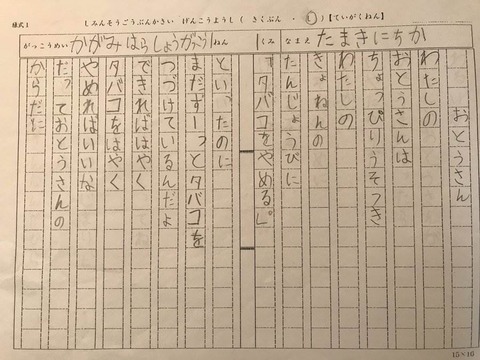 様式1
しみんそうごうぶんかさい げんこうようし ( さくぶん ・ し )【ていがくねん】
がっこうめい かがみはらしょうがっこう 1ねん 1くみ なまえ たまきにちか
おとうさん
わたしの
おとうさんは
ちょっぴりうそつき
わたしの
きょねんの
たんじょうびに
「タバコをやめる」。
といったのに
まだずーっとタバコを
つづけているんだよ
できればはやく
タバコをはやく
やめればいいな
だっておとうさんの
からだに
15×16